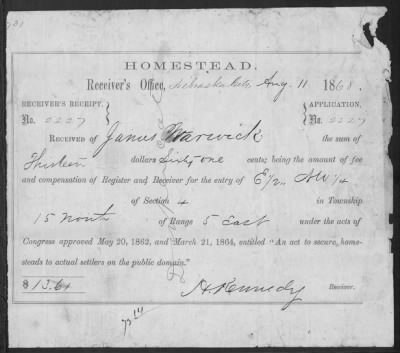 HOMESTEAD.
Receiver's Office, Nebraska City Aug. 11 1868.
RECEIVER'S RECEIPT, APPLICATION,
No. 2227 No. 2227
RECEIVED OF James Warwick the sum of
Thirteen dollars Sixty one cents; being the amount of fee
and compensation of Register and Receiver for the entry of E/2 NW/4
of Section 4 in Township
15 North of Range 5 East under the acts of
Congress approved May 20, 1862, and March 21, 1864, entitled "An act to secure home-
steads to actual settlers on the public domain."
$ 13.61 Kennedy Receiver.